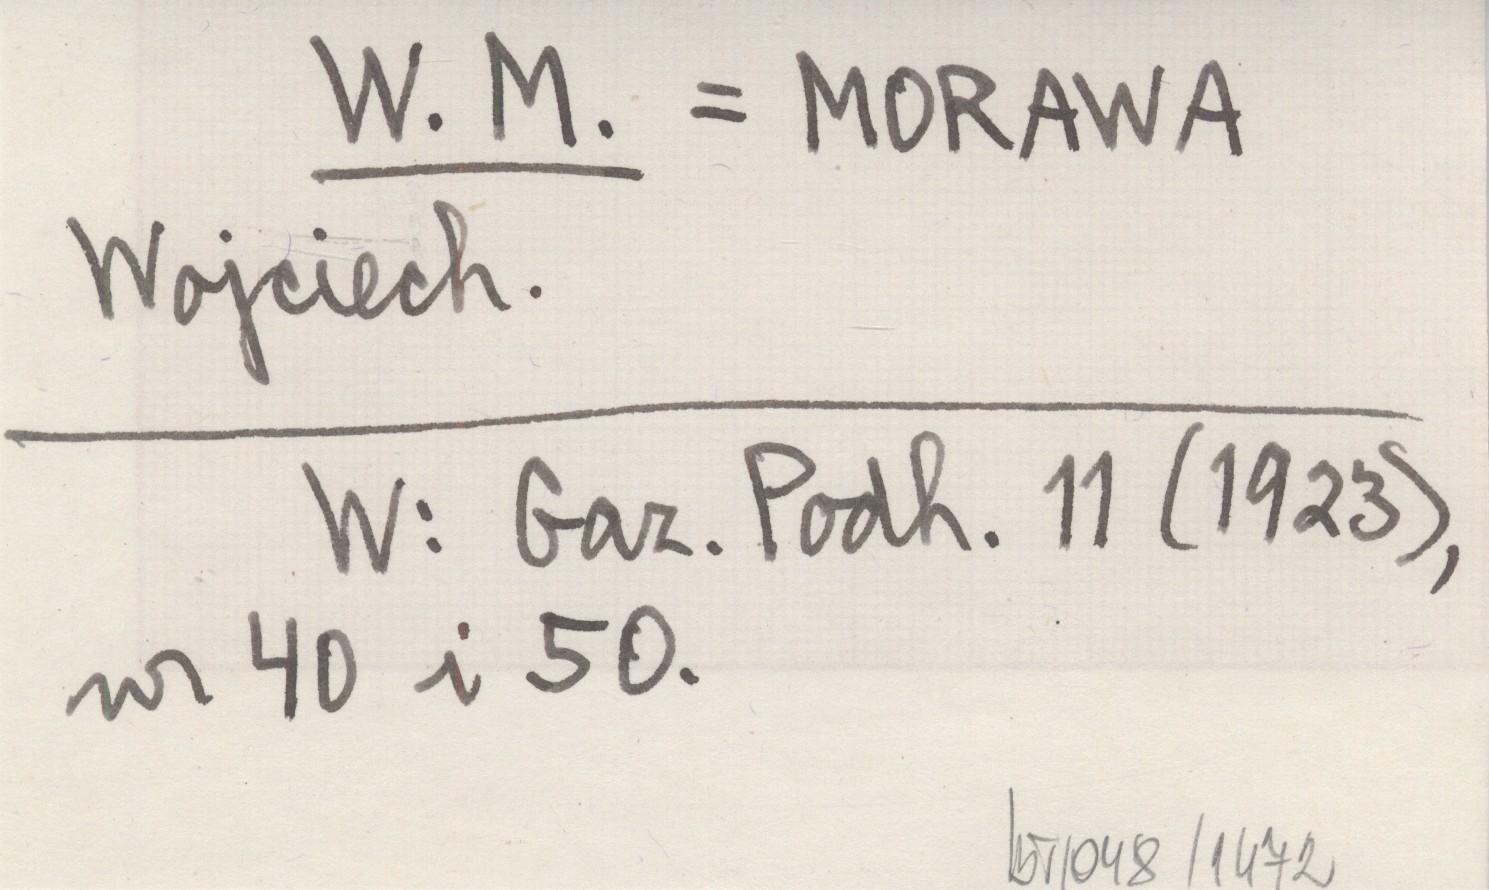 W. M. = MORAWA
Wojciech.
W: Gaz. Podh. 11 (1923),
nr 40 i 50.
/1472